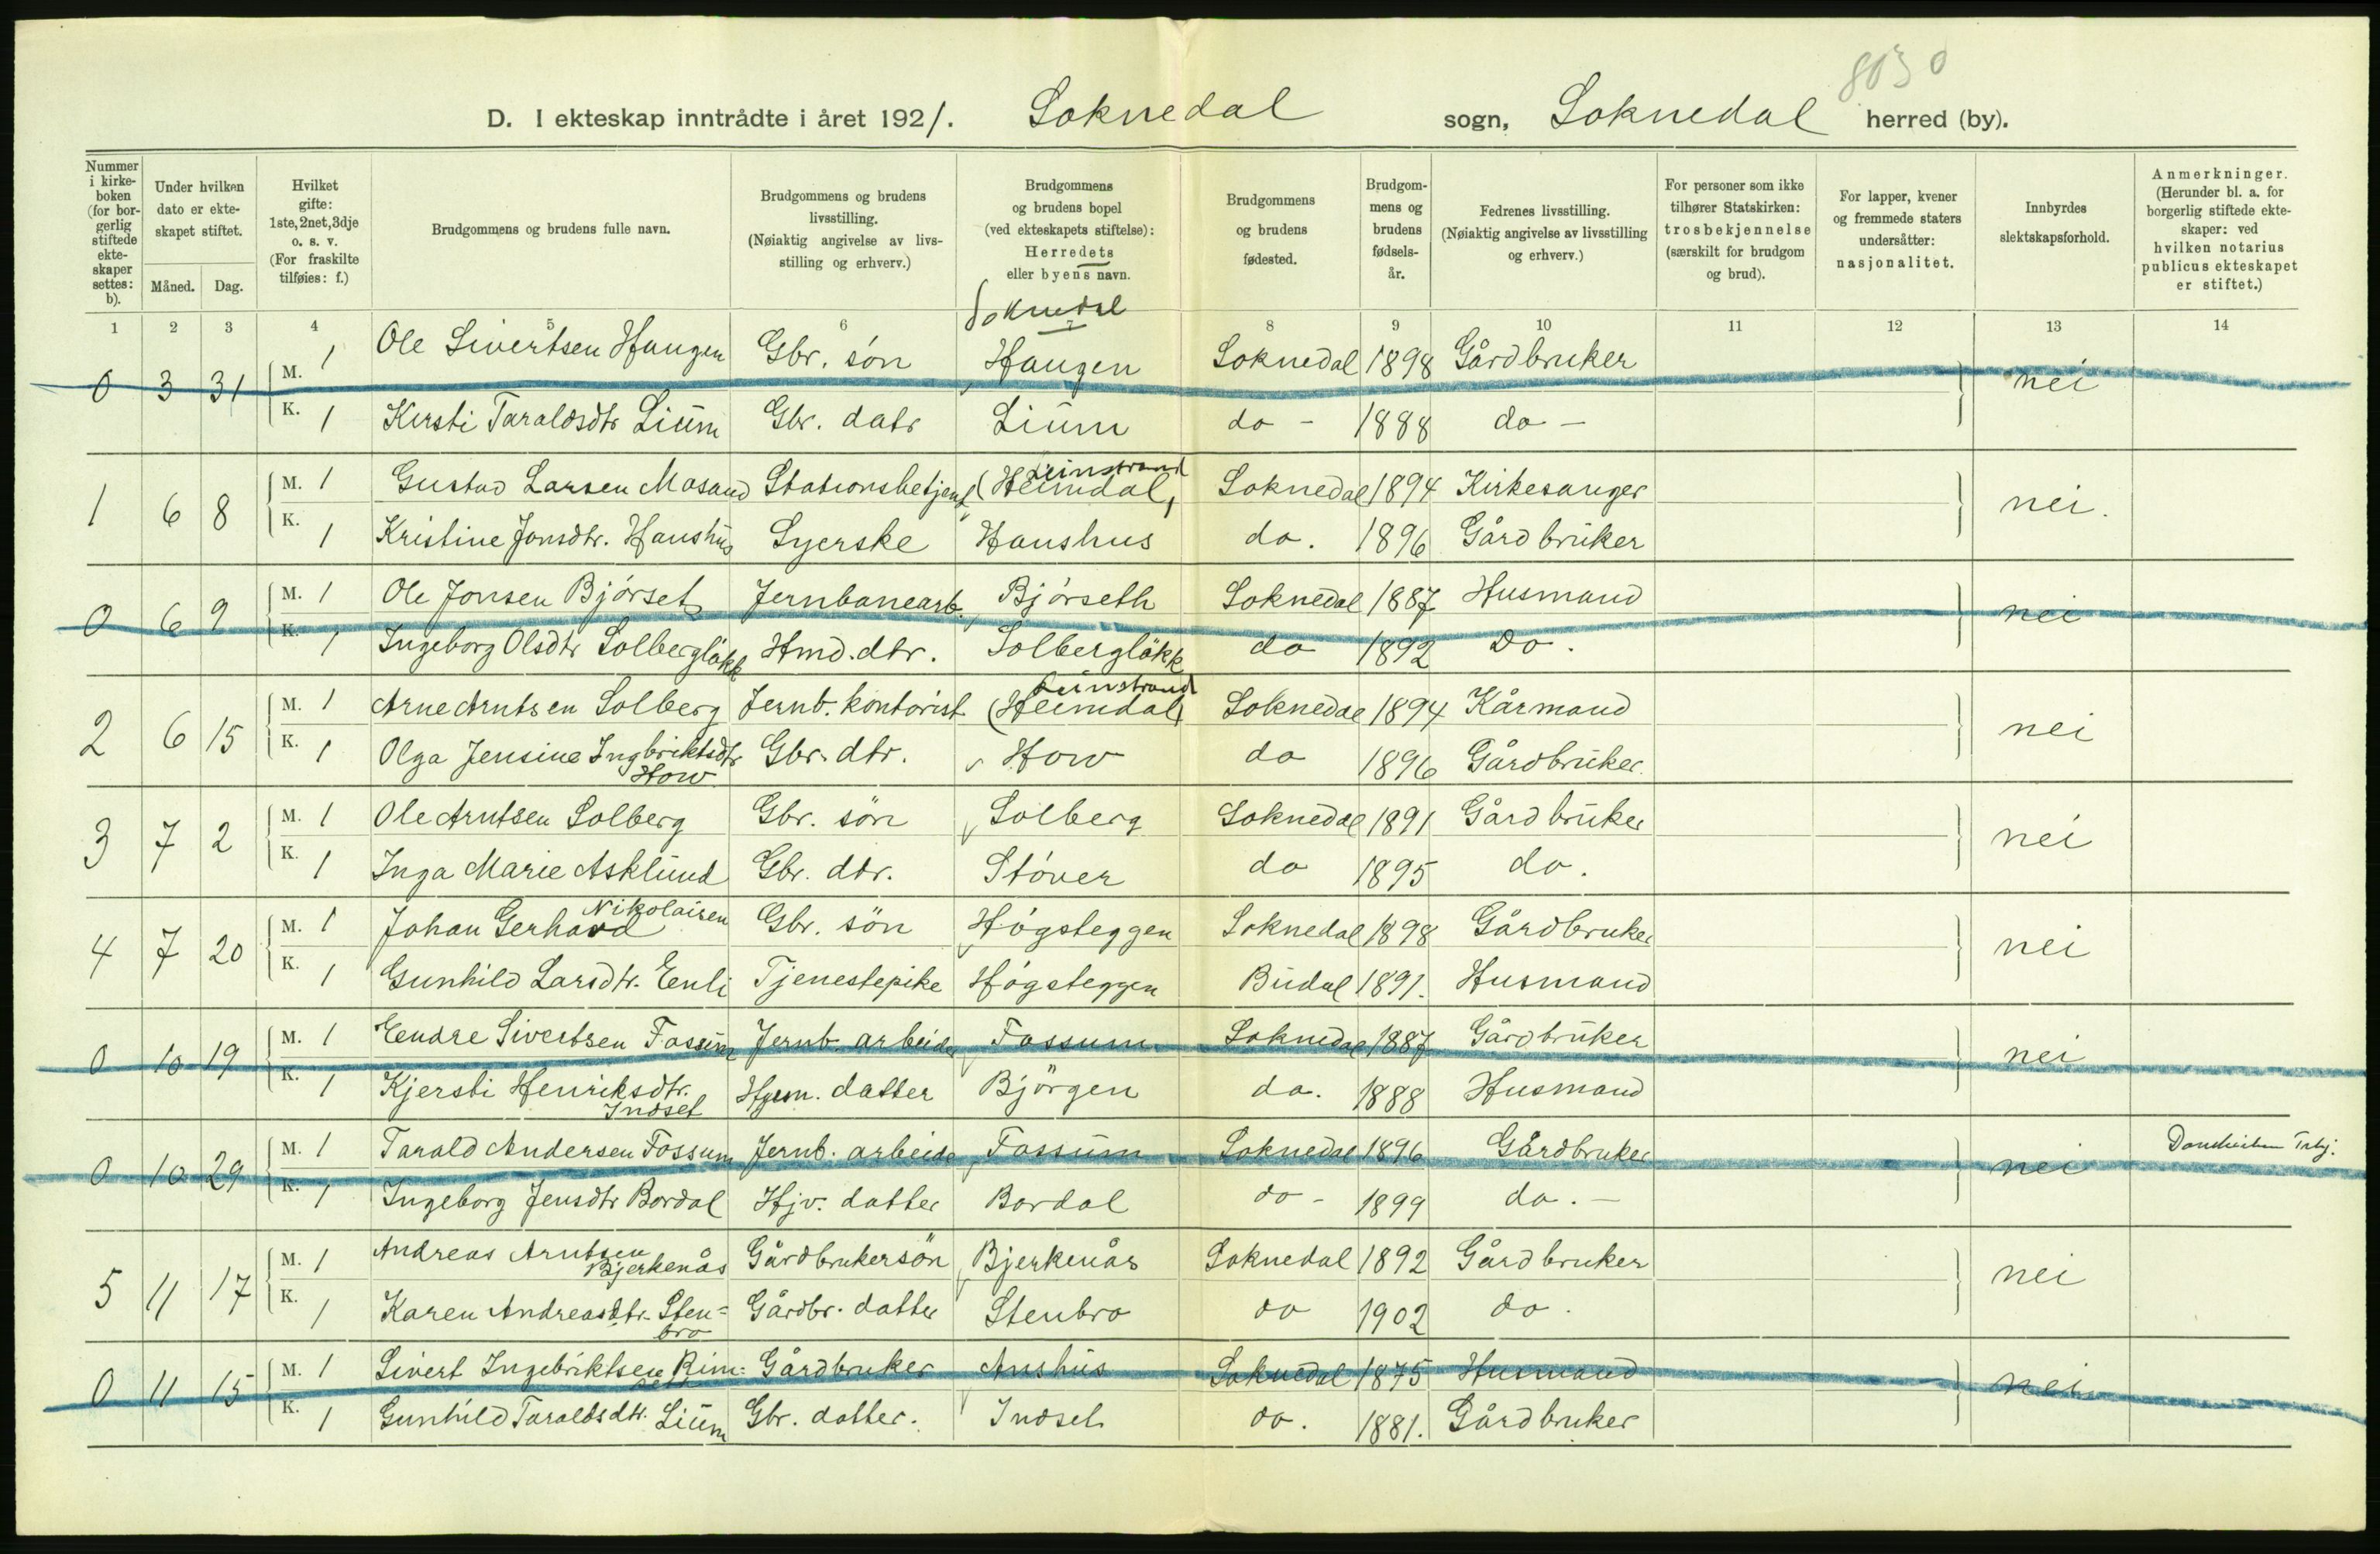 8030
D. I ekteskap inntrådte i året 1921. Soknedal sogn, Soknedal herred (by).
Nummer i kirke-boken (for bor-gerlig stiftede ekte-skaper settes: b).
Under hvilken dato er ekte-skapet stiftet.
Måned. Dag.
Hvilket gifte: 1ste, 2net, 3dje o. s. v. (For fraskilte tilføies: f.)
Brudgommens og brudens fulle navn.
Brudgommens og brudens livsstilling. (Nøiaktig angivelse av livs-stilling og erhverv.)
Brudgommens og brudens bopel (ved ekteskapets stiftelse): Herredets eller byens navn.
Brudgommens og brudens fødested.
Brudgom-mens og brudens fødsels-år.
Fedrenes livsstilling. (Nøiaktig angivelse av livsstilling og erhverv.)
For personer som ikke tilhører Statskirken: trosbekjennelse (særskilt for brudgom og brud).
For lapper, kvener og fremmede staters undersåtter: nasjonalitet.
Innbyrdes slektskapsforhold.
Anmerkninger. (Herunder bl. a. for borgerlig stiftede ekte-skaper: ved hvilken notarius publicus ekteskapet er stiftet.)
Soknedal
1 2 3 4 5 6 7 8 9 10 11 12 13 14
0 3 31 M. 1 Ole Sivertsen Haugen Gbr. søn Haugen Soknedal 1898 Gårdbruker nei
K. 1 Kirsti Taraldsdtr Lium Gbr. datr Lium do - 1888 do -
Leinstrand
1 6 8 M. 1 Gustav Larsen Mosand Stationsbetjent (Heimdal) Soknedal 1894 Kirkesanger nei.
K. 1 Kristine Jonsdtr. Haushus Syerske Haushus do. 1896 Gårdbruker
0 6 9 M. 1 Ole Jonsen Bjørset Jernbanearb. Bjørseth Soknedal 1887 Husmand nei
K. 1 Ingeborg Olsdtr Solbergløkk Hmd. dtr. Solbergløkk do 1892 Do.
Leinstrand
2 6 15 M. 1 Arne Arntsen Solberg Jernb. kontorist (Heimdal) Soknedal 1894 Kårmand nei
K. 1 Olga Jensine Ingbriktsdtr How Gbr. dtr. How do 1896 Gårdbruker.
3 7 2 M. 1 Ole Arntsen Solberg Gbr. søn Solberg Soknedal 1891 Gårdbruker nei
K. 1 Inga Marie Asklund Gbr. dtr. Støver do 1895 do.
4 7 20 M. 1 Johan Gerhard Nikolaisen Gbr. søn Høgsteggen Soknedal 1898 Gårdbruker nei
K. 1 Gunhild Larsdtr. Enli Tjenestepike Høgsteggen Budal 1891. Husmand
0 10 19 M. 1 Endre Sivertsen Fossum Jernb. arbeider Fossum Soknedal 1887 Gårdbruker nei
K. 1 Kjersti Henriksdtr. Indset datter Bjørgen do. 1888 Husmand
0 10 29 M. 1 Tarald Andersen Fossum Jernb. arbeider Fossum Soknedal 1896 Gårdbruker nei
K. 1 Ingeborg Jensdtr Bordal Hjv. datter Bordal do - 1899 do. -
5 11 17 M. 1 Andreas Arntsen Bjerkenås Gårdbrukersøn Bjerkenås Soknedal 1892 Gårdbruker nei
K. 1 Karen Andreasdtr. Sten=bro Gårdbr. datter Stenbro do 1902 do.
0 11 15 M. 1 Sivert Ingebriktsen Gårdbruker Aushus Soknedal 1875 Husmand nei
K. 1 Gunhild Taraldsdtr. Lium Gbr. datter. Indset do. 1881. Gårdbruker